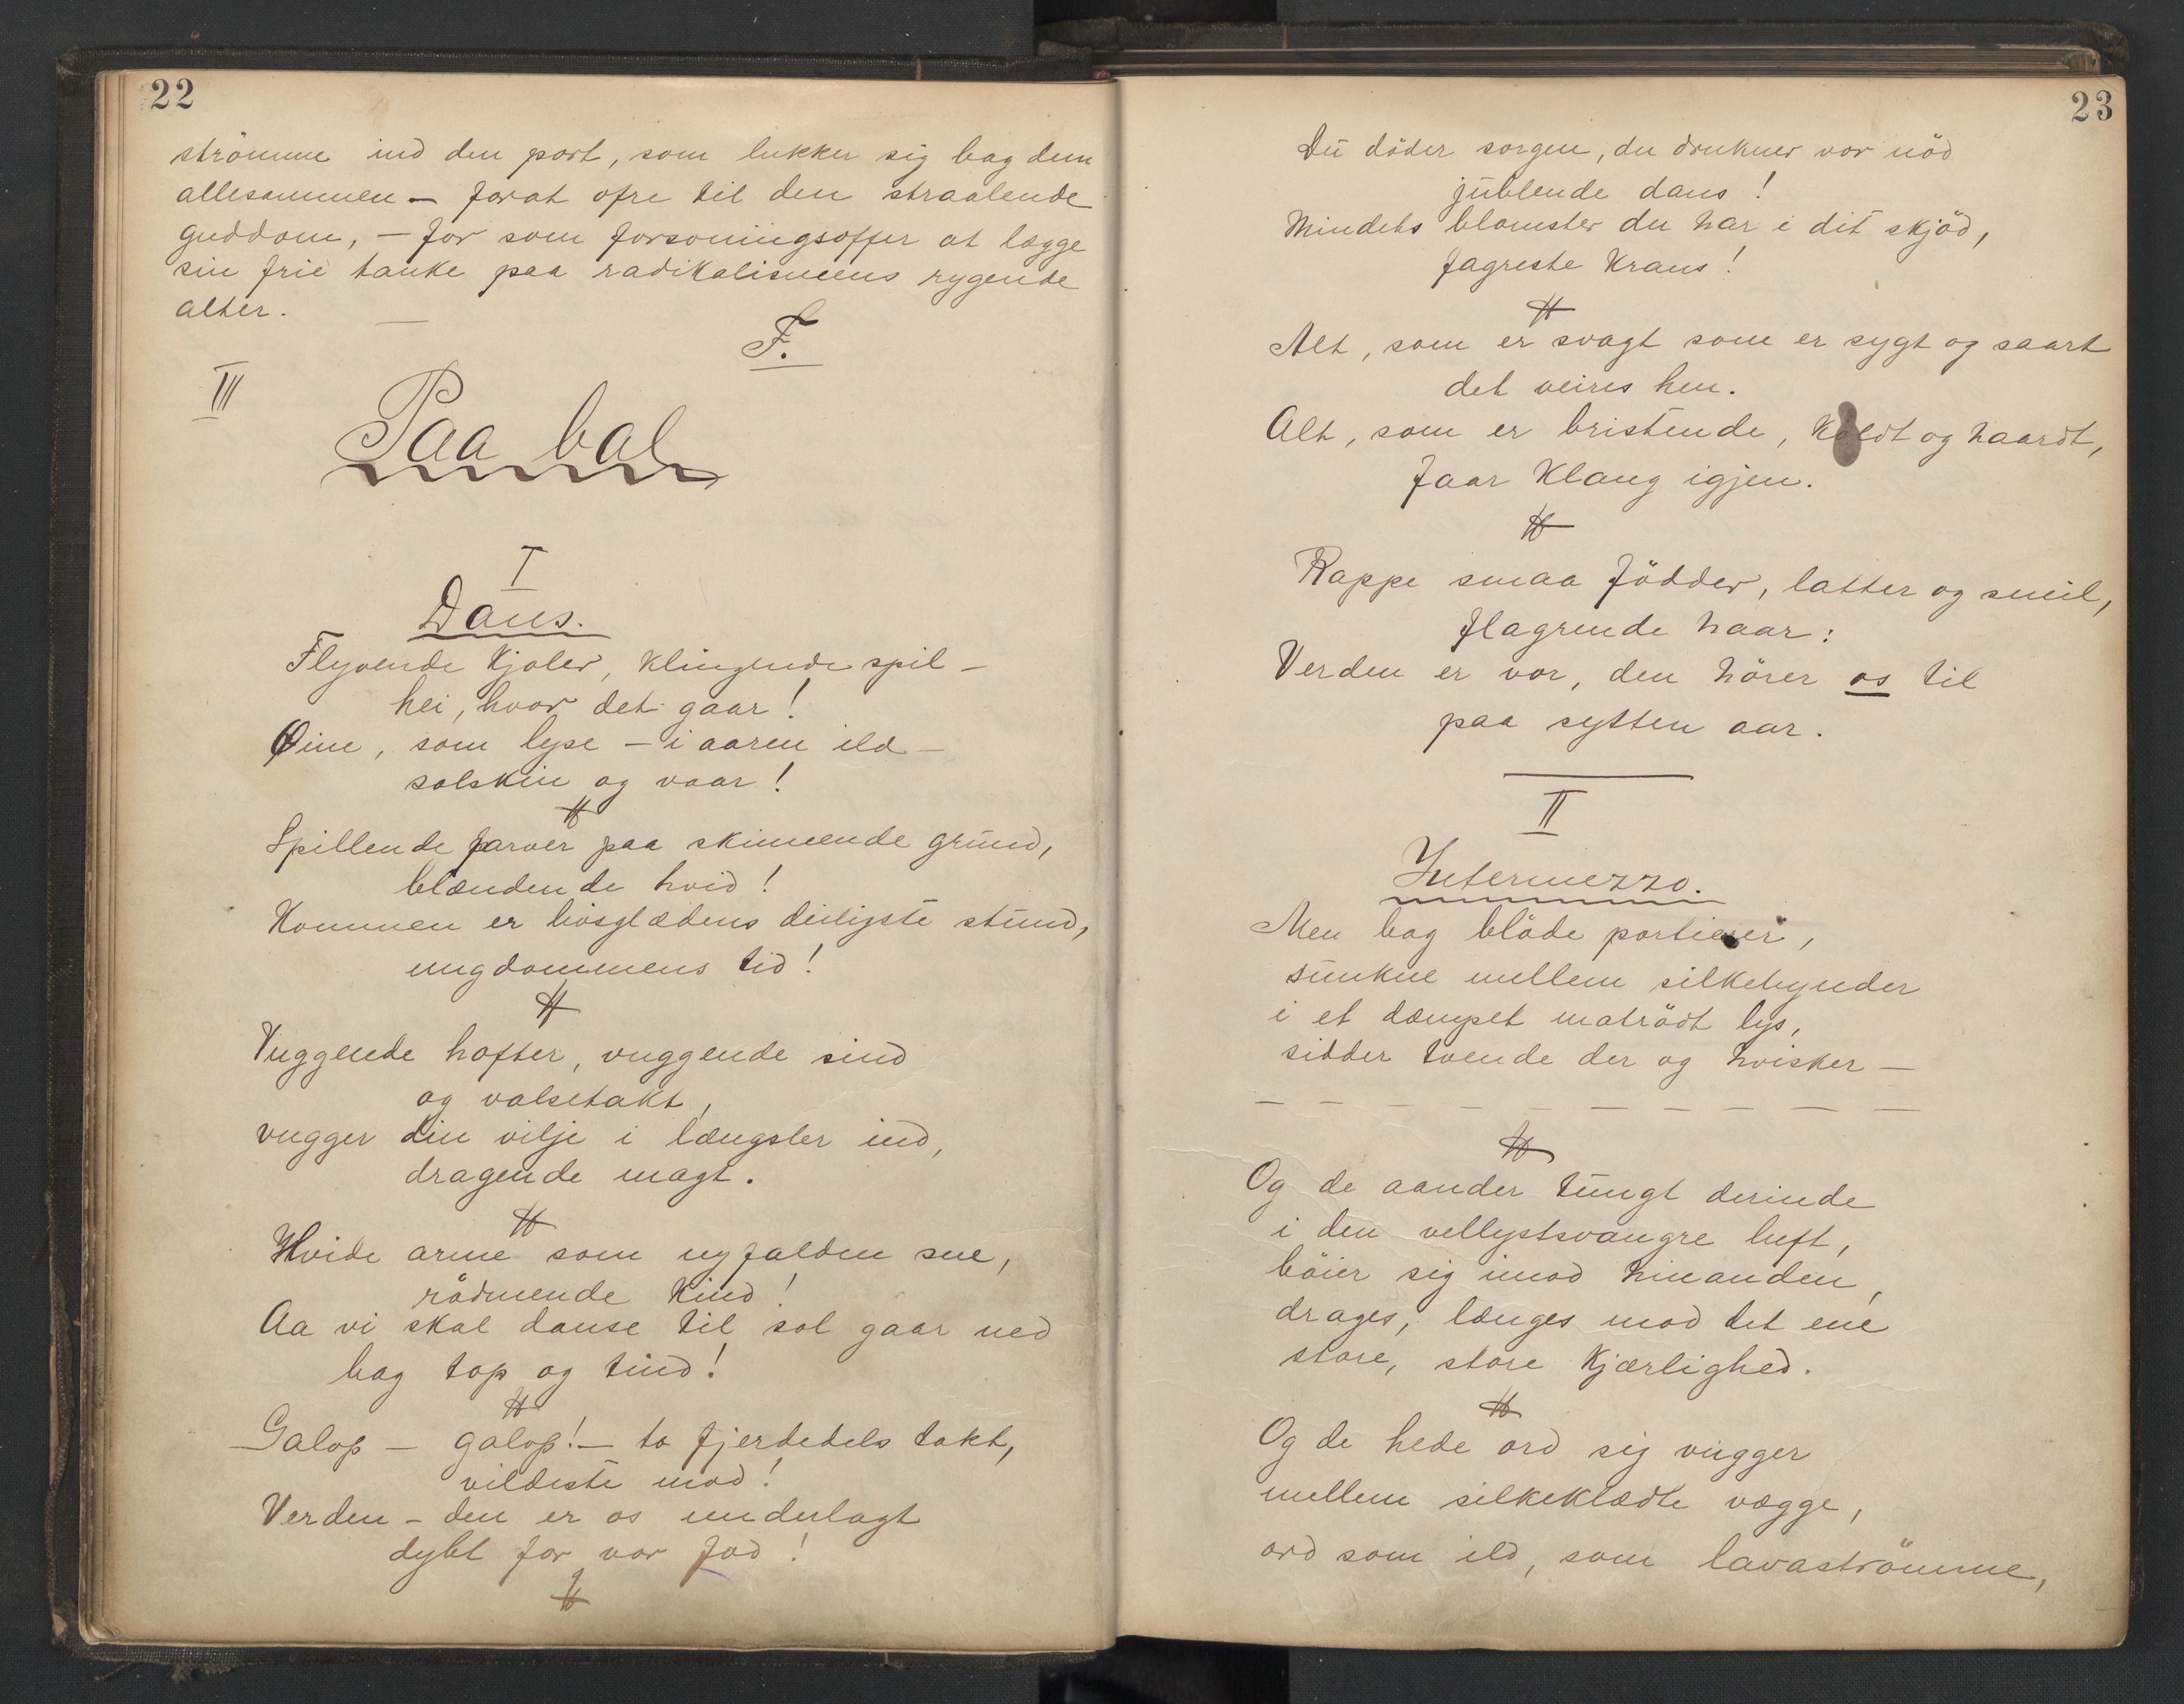 22
strömme ind den port, som lukker sig bag dem
allesammen — forat ofre til den straalende
guddom, — for som forsoningsoffer at lægge
sin frie tanke paa radikalismens rygende
alter. —
F.
III
Paa bal
I
Dans.
Flyvende kjoler, klingende spil —
hei, hvor det gaar!
Øine, som lyse — i aaren ild —
solskin og vaar!
Spillende farver paa skinnende grund,
blændende hvid!
Kommen er livsglædens deiligste stund,
ungdommens tid!
Vuggende hofter, vuggende sind
og valsetakt,
vugger din vilje i længsler ind,
dragende magt.
Hvide arme som nyfalden sne,
rødmende kind!
Aa vi skal danse til sol gaar ned
bag top og tind!
Galop — galop! — to fjerdedels takt,
vildeste mod!
Verden — den er os underlagt
dybt for vor fod!
23
Du döder sorgen, du drukner vor nöd
jublende dans!
Mindets blomster du har i dit skjöd,
fagreste krans!
Alt, som er svagt som er sygt og saart
det veires hen.
Alt, som er bristende, koldt og haardt,
faar klang igjen.
Rappe smaa födder, latter og smil,
flagrende haar:
Verden er vor, den hörer os til
paa sytten aar.
II
Intermezzo.
Men bag blöde portierer,
sunkne mellem silkehynder
i et dæmpet matrödt lys,
sidder tvende der og hvisker —
— — — — — — — — — —
Og de aander tungt derinde
i den vellystsvangre luft,
böier sig imod hinanden,
drages, længes mod det ene
store, store kjærlighed.
Og de hede ord sig vugger
mellem silkeklædte vægge,
ord som ild, som lavaströmme,